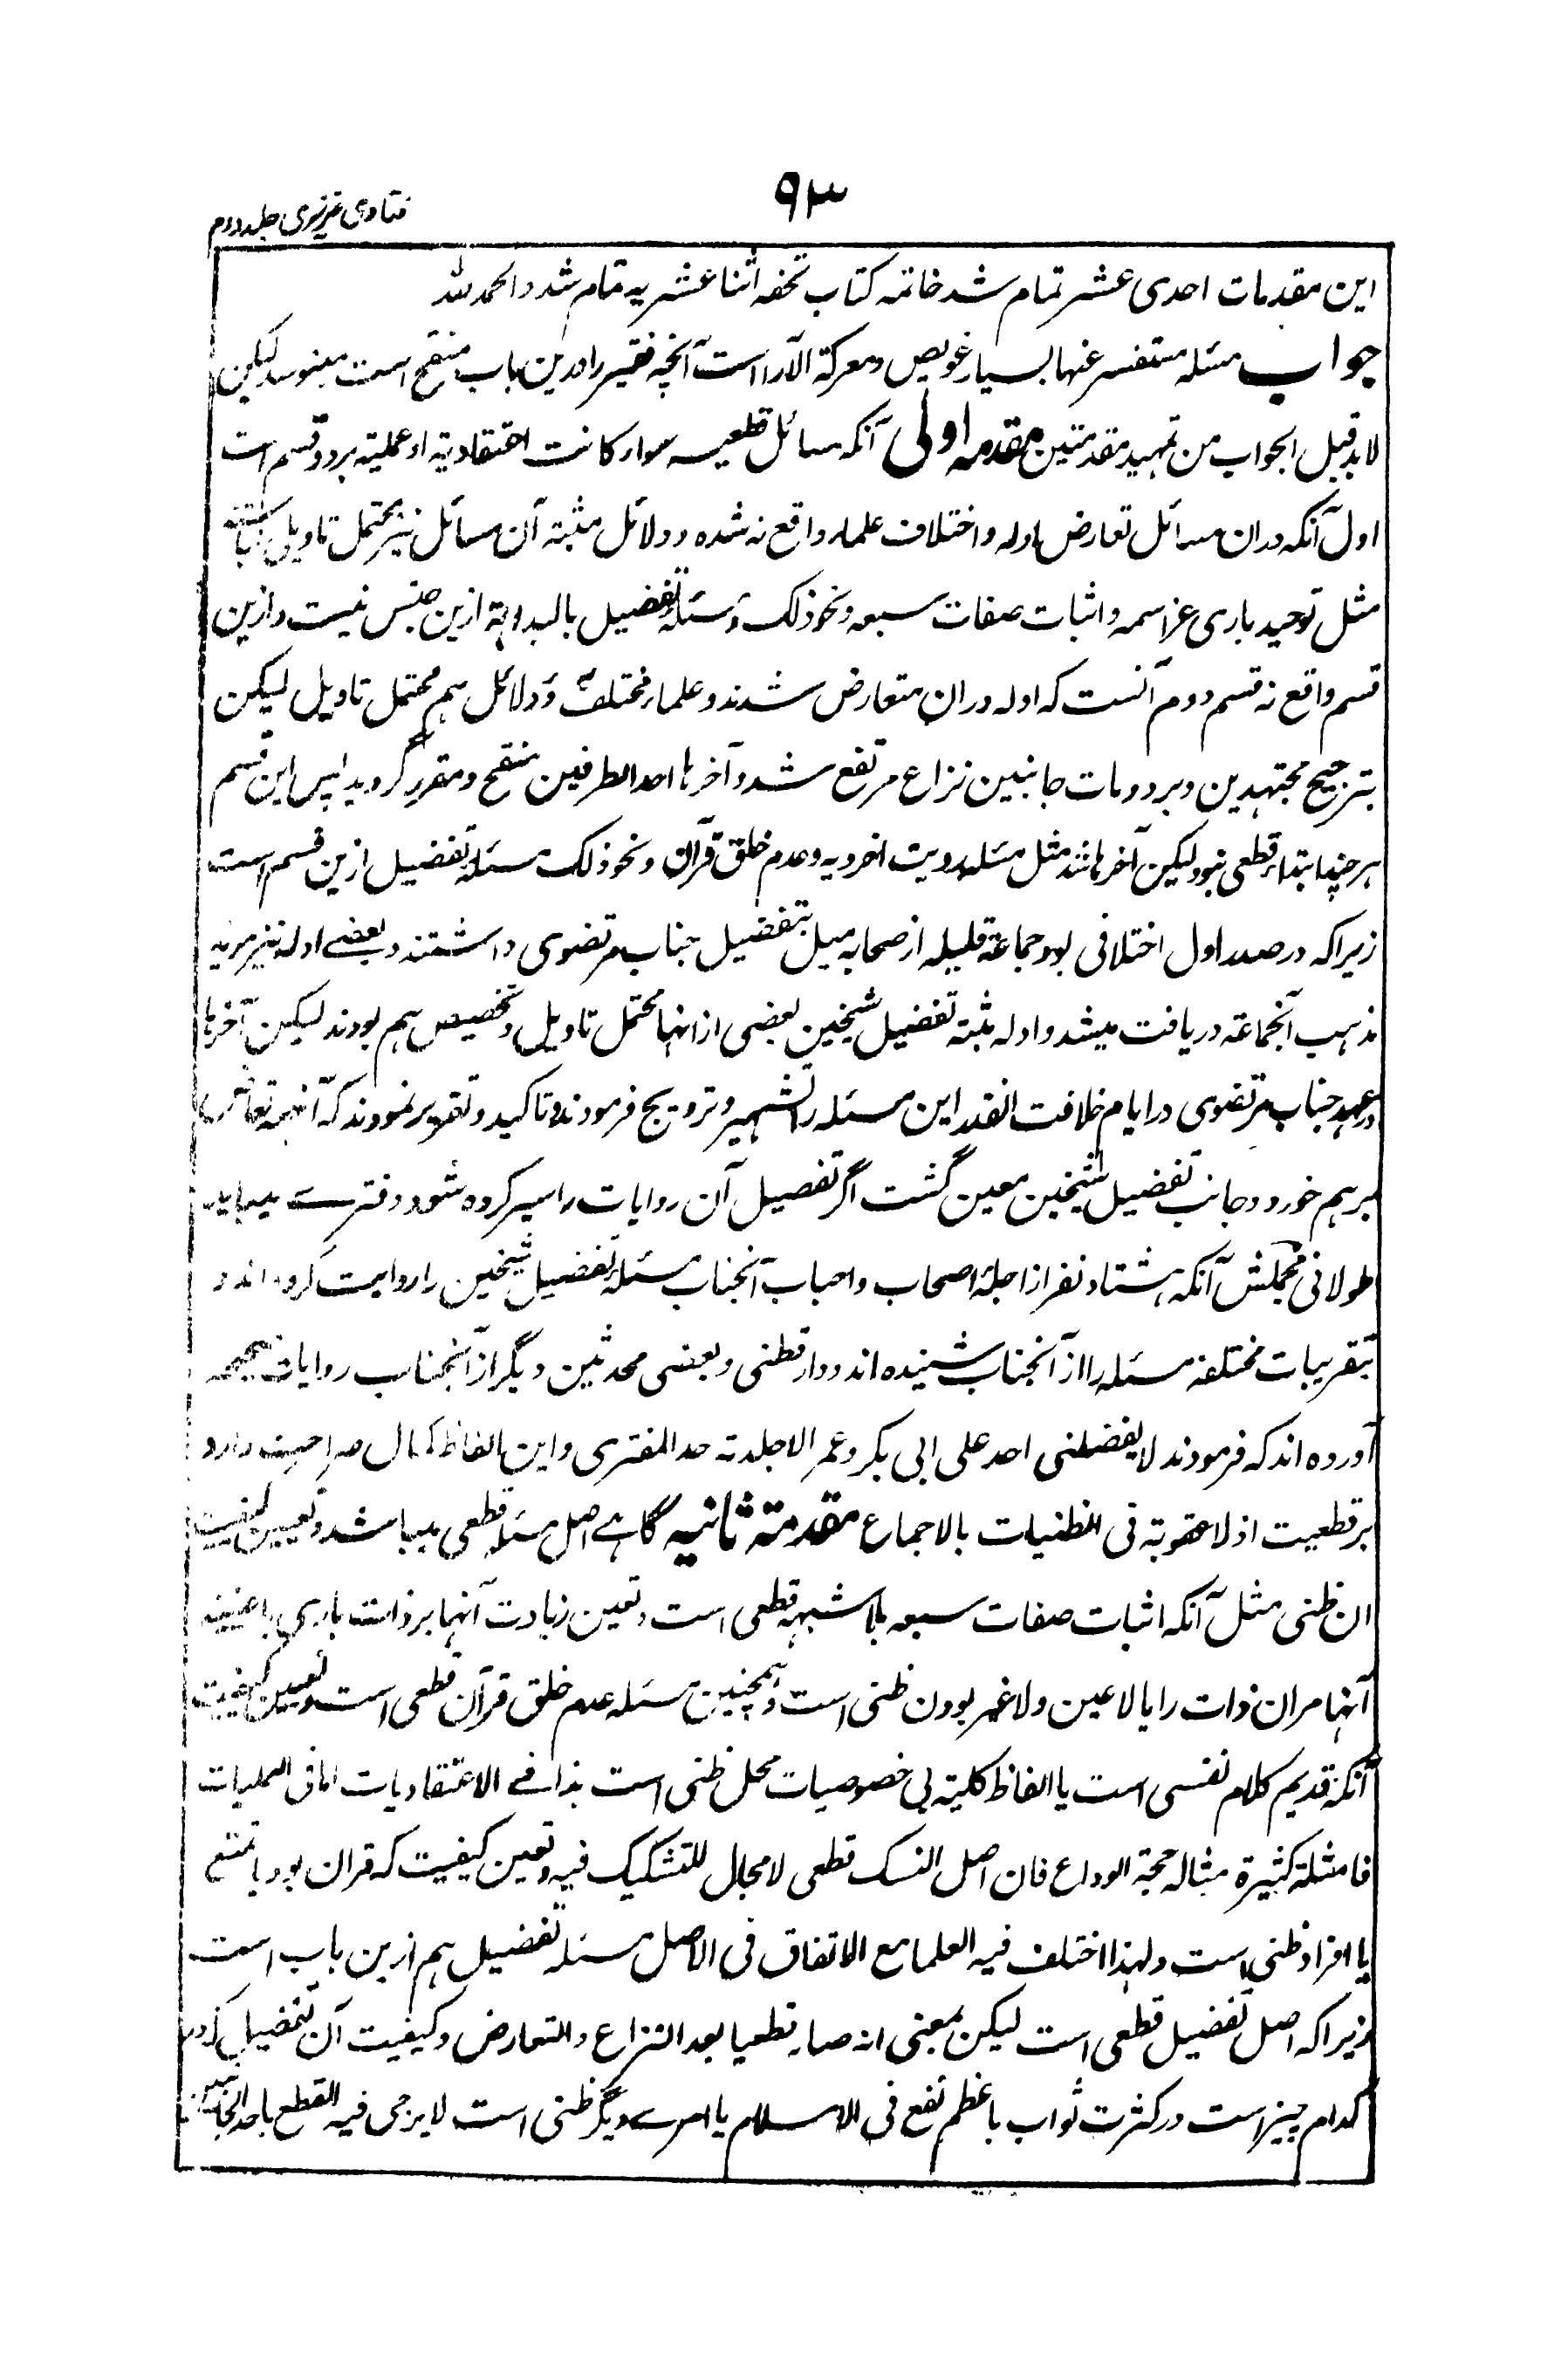 ۹۳
فتاوی عزیزی جلد دوم
این مقدمات احدی عشر تمام شد خاتمه کتاب تحفه اثنا عشریه تمام شد والحمد لله
جواب مسئله مستفسر عنها بسیار غویص و معرکة الآرا است آنچه فقیر را درین باب منقح است مینویسد لیکن
لا بد قبل الجواب من تمهید مقدمتین مقدمه اولی آنکه مسائل قطعیه سواء کانت اعتقادیة او عملیة بر دو قسم است
اول آنکه دران مسائل تعارض ادله و اختلاف علماء واقع نه شده و دلائل مثبتة آن مسائل نیز محتمل تاویل
مثل توحید باری عز اسمه و اثبات صفات سبعه و نحو ذلک و مسئله تفضیل بالبداهة ازین جنس نیست و ازین
قسم واقع نه قسم دوم آنست که ادله دران متعارض شدند و علماء مختلف و دلائل هم محتمل تاویل لیکن
بترجیح مجتهدین و برد و مات جانبین نزاع مرتفع شد و آخرها احد الطرفین منقح و مقرر گردید پس این قسم
هر چند ابتداء قطعی نبود لیکن آخرها شد مثل مسئله رویت اخرویه و عدم خلق قرآن و نحو ذلک مسئله تفضیل ازین قسم است
زیرا که در صدر اول اختلافی بود جماعة قلیله از صحابه میل بتفضیل جناب مرتضوی داشتند و بعضے ادله نیز موید
مذهب آنجماعة دریافت میشد و ادله مثبتة تفضیل شیخین بعضی ازانها محتمل تاویل و تخصیص هم بودند لیکن آخرها
در عهد جناب مرتضوی در ایام خلافت انقدر این مسئله را تشهیر و ترویج فرمودند و تاکید و تقویر نمودند که آنهمه تعارض
برهم خورد و جانب تفضیل شیخین معین گشت اگر تفصیل آن روایات را سیر کرده شود دفترے میباید
طولانی مجملش آنکه هشتاد نفر از اجلهٔ اصحاب و احباب آنجناب مسئله تفضیل شیخین را روایت کرده اند و
بتقریبات مختلفه مسئله را از آنجناب شنیده اند و دارقطنی و بعضی محدثین دیگر از آنجناب روایات صحیحه
آورده اند که فرمودند لا یفضلنی احد علی ابی بکر و عمر الا جلدته حد المفتری و این الفاظ کمال صراحت دارد
بر قطعیت اذ لا عقوبة فی الظنیات بالاجماع مقدمة ثانیه گاهے اصل مسئله قطعی میباشد و تعیین کیفیت
ان ظنی مثل آنکه اثبات صفات سبعه بلا شبهه قطعی است و تعین زیادت آنها بر ذات باری یا عینیة
آنها مران ذات را یا لا عین و لا غیر بودن ظنی است و همچنین مسئله عدم خلق قرآن قطعی است و تعیین کیفیت
آنکه قدیم کلام نفسی است یا الفاظ کلیة بی خصوصیات محل ظنی است هذا فے الاعتقادیات اما فی العملیات
فامثلة کثیرة مثاله حجة الوداع فان اصل النسک قطعی لا مجال للتشکیک فیه و تعین کیفیت که قران بود یا تمتع
یا افراد ظنی است و لهذا اختلف فیه العلما مع الاتفاق فی الاصل مسئله تفضیل هم ازین باب است
زیرا که اصل تفضیل قطعی است لیکن بمعنی انه صار قطعیا بعد النزاع و التعارض و کیفیت آن تفضیل که در
کدام چیز است در کثرت ثواب یا اعظم نفع فی الاسلام یا امرے دیگر ظنی است لا یرجی فیه القطع باحد الجانبین